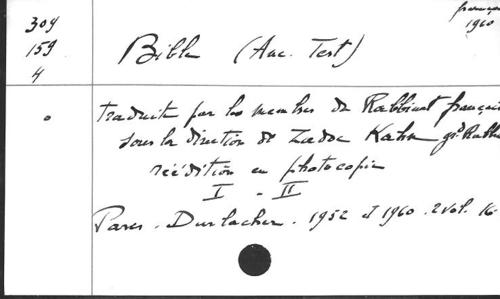 français
1960
309
159
4
Bible (Anc. Test)
traduite par les membres du Rabbinat français
sous la direction de Zadoc Kahn gd Rabbin
réédition en photocopie
I - II
Paris. Durlacher. 1952 et 1960. 2 vol. 16-